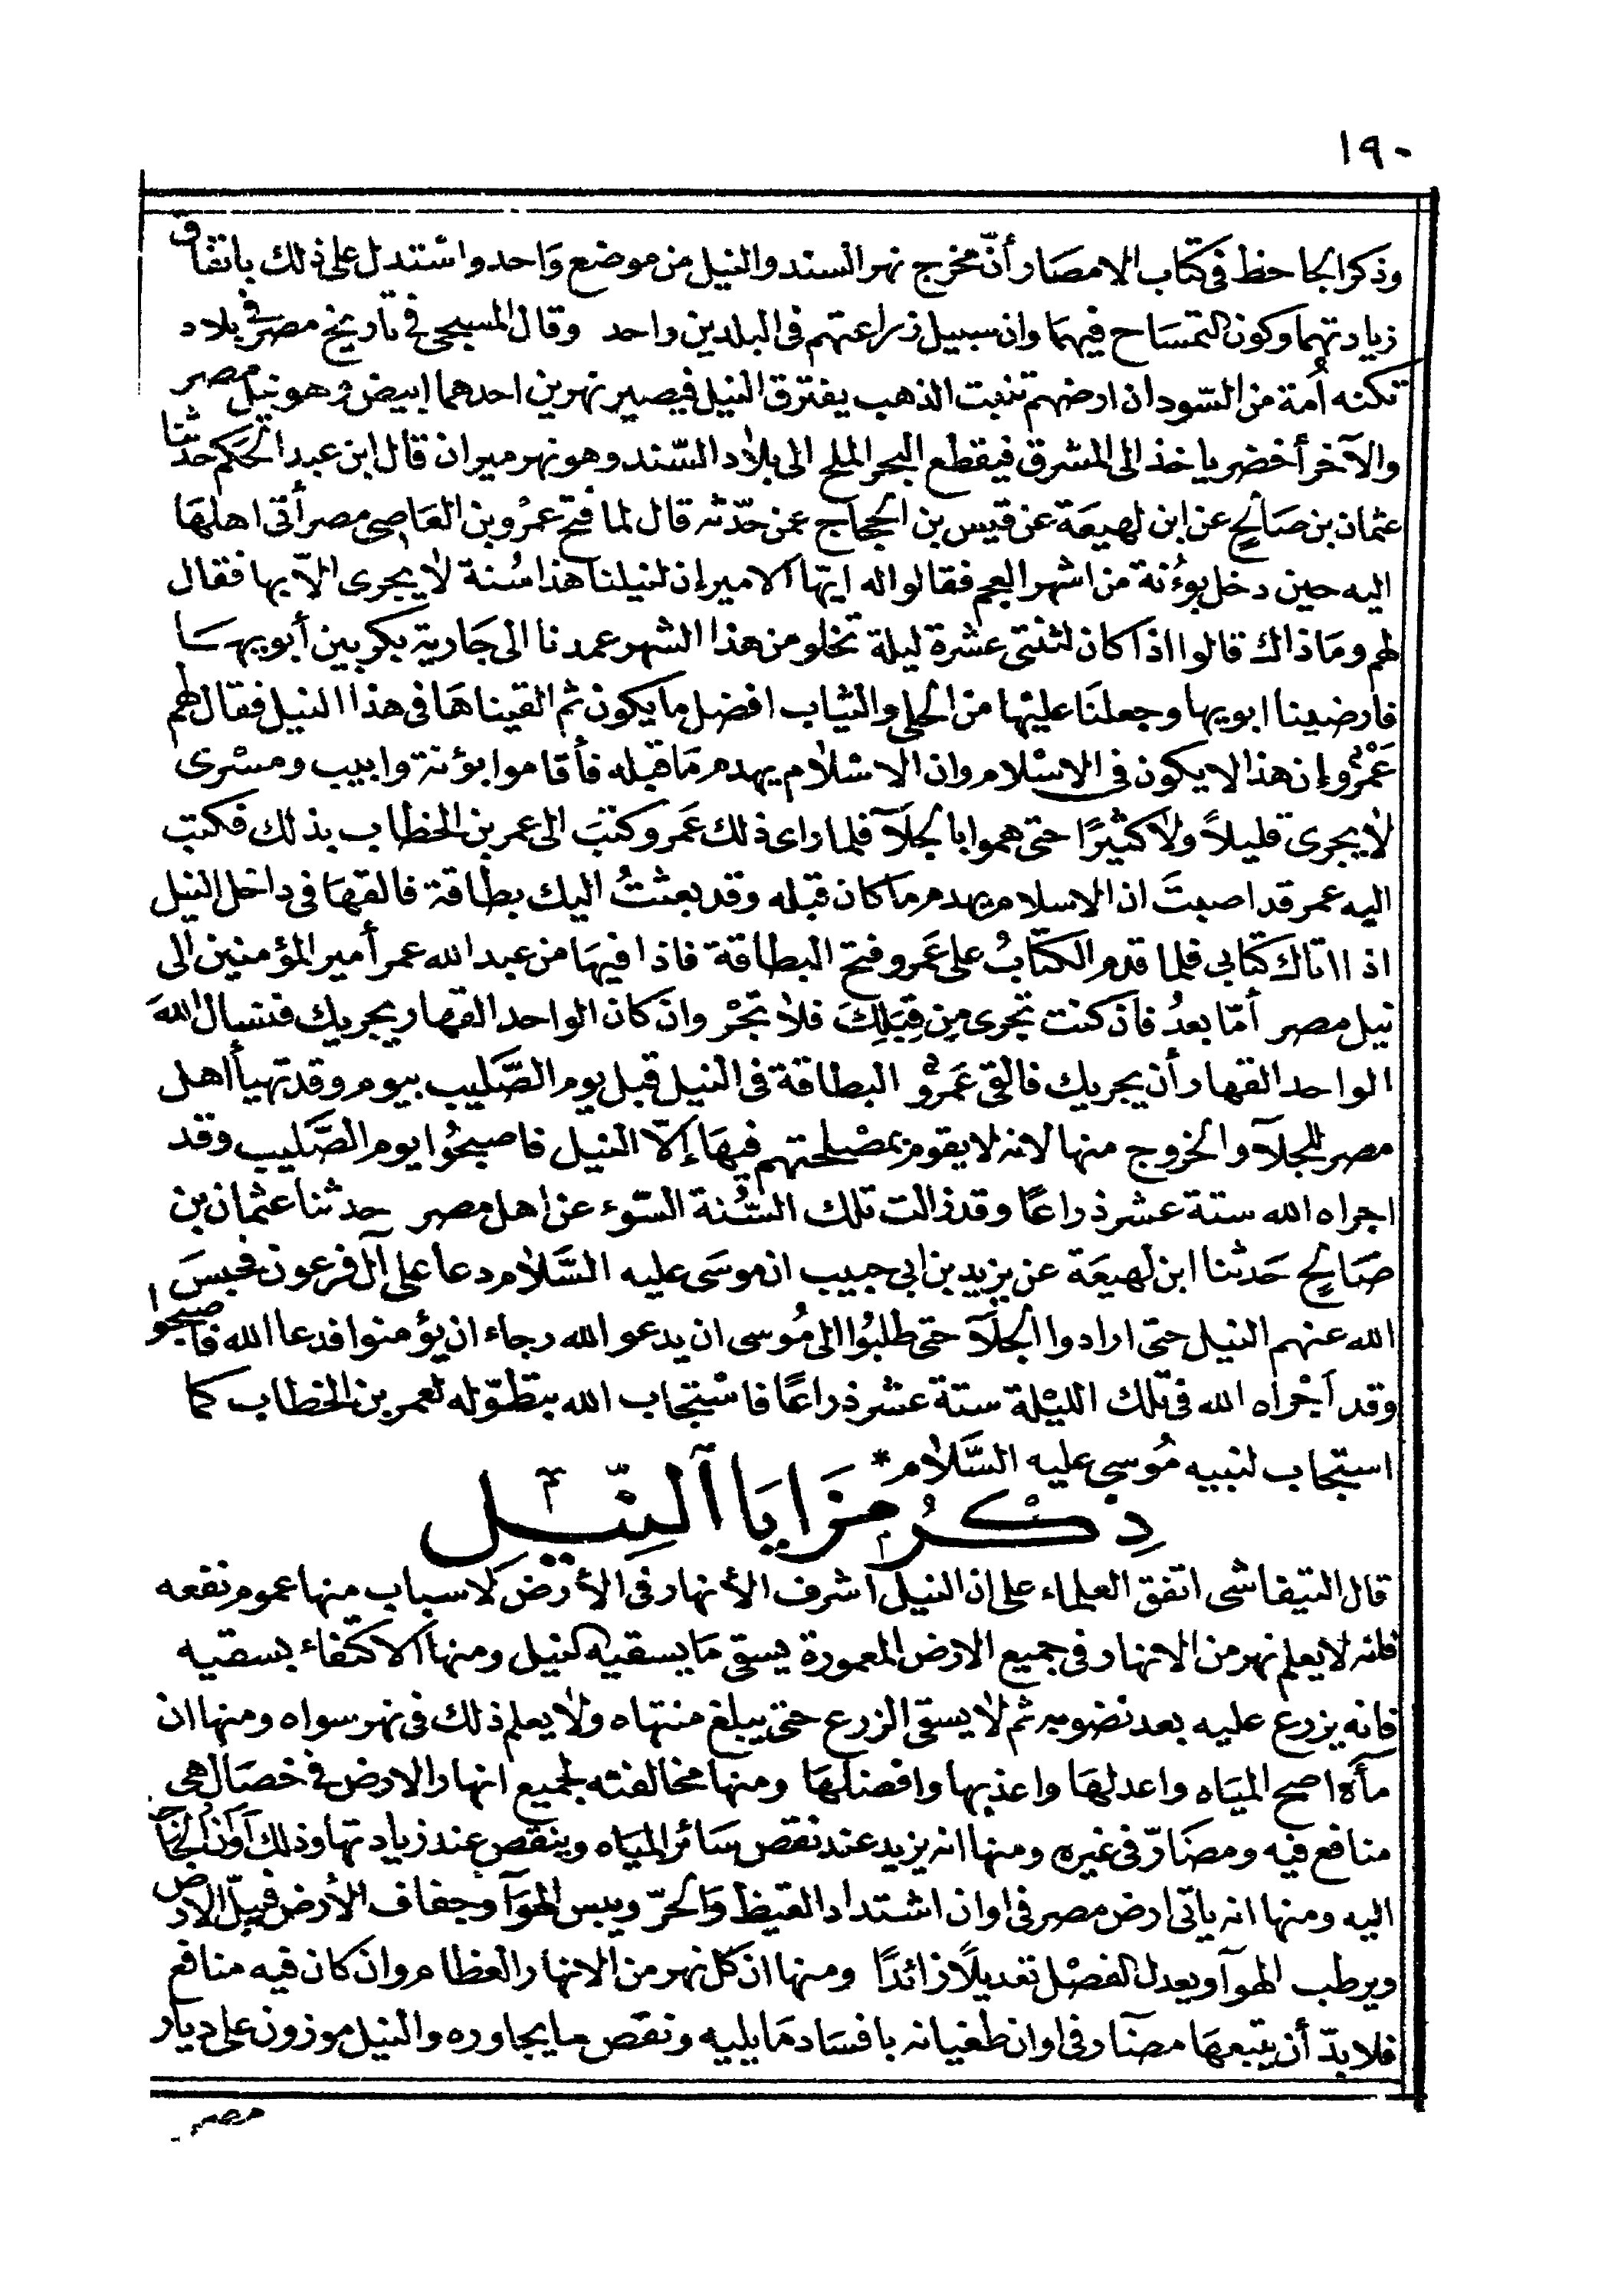 ١٩٠
وذكر الجاحظ في كتاب الامصار أنّ مخرج نهر السند والنيل من موضع واحد واستدل على ذلك باتفاق
زيادتهما وكون التمساح فيهما وان سبيل زراعتهم في البلدين واحد وقال المسبحي في تاريخ مصر في بلاد
تكنه أمة من السّودان ارضهم تنبت الذهب يفترق النيل فيصير نهرين احدهما ابيض وهو نيل مصر
والآخر أخضر ياخذ الى المشرق فيقطع البحر الملح الى بلاد السّند وهو نهر ميران قال ابن عبد الحكم حدّثنا
عثمان بن صَالحٍ عن ابن لهيعَة عن قيس بن الحجاج عمن حدّثه قال لما فتح عمرُو بن العَاصى مصر أتى اهلهَا
اليه حين دخل بوُنة من اشهر العجم فقالوا له ايّها الامير إن لنيلنا هذا سُنة لا يجرى الاّ بها فقال
لهم ومَا ذاك قالوا اذا كان لثنتى عشرة ليلة تخلو من هذا الشهر عمدنا الى جَارية بكر بين أبويهسَا
فارضينا ابويها وجعلنَا عليْها منَ الحلى والثياب افضل ما يكون ثم القيناهَا فى هذا النيل فقال لهم
عَمْرٌو إن هذا لا يكون فى الاسْلام وان الاسْلام يهدم مَا قبله فأقاموا بؤنة وابيب ومسْرى
لا يجرى قليلاً ولا كثيرًا حتى هموا بالجلآ فلما راى ذلك عَمرو كتبَ الى عمر بن الخطاب بذلك فكتب
اليه عمر قد اصبتَ ان الاسلام يهدم ما كان قبله وقد بعثتُ اليك بطاقة فالقهَا فى داخل النيل
اذا اتاك كتابى فلما قدم الكتابُ على عَمرو فتح البطاقة فاذا فيهَا من عبد الله عمر أمير المؤمنين الى
نيل مصر أمّا بعدُ فان كنت تجرى مِن قِبَلِكَ فلا تجْر وان كان الواحد القهار يجريك فنسال اللهَ
الواحد القهار أن يجريك فالقى عَمرٌو البطاقة فى النيل قبل يوم الصَّليب بيوم وقد تهيأ اهل
مصر للجلآ والخروج منها لانه لا يقوم بمصْلحتهم فيهَا إلاّ النيل فاصبحُوا يوم الصَّليب وقد
اجراه الله ستة عشر ذراعًا وقد زالت تلك السُّنة السّوء عن اهل مصر حدثنا عثمان بن
صَالحٍ حَدثنا ابن لهيعَة عن يزيد بن ابى حبيب ان موسَى عليه السَّلام دعا على آل فرعون فحبسَ
الله عنهم النيل حتى ارادوا الجلآ حتى طلبُوا الى مُوسى ان يدعو الله رجاء ان يؤمنوا فدعا الله فاصبحوا
وقد اَجْراه الله فى تلك الليْلة ستة عشر ذراعًا فاسْتجاب الله بتطوّله لعمر بن الخطاب كما
استجاب لنبيه مُوسى عليه السَّلام *
ذِكْرُ مَزَايَا النِّيل
قال التيفاشى اتفق العلماء على ان النيل اشرف الأنهار فى الأرض لاسباب منها عموم نفعه
فانه لا يعلم نهر من الانهار فى جميع الارض المعمورة يسقى مَا يسقيه النيل ومنها الاكتفاء بسقيه
فانه يزرع عليه بعد نضوبه ثم لا يسقى الزرع حتى يبلغ منتهاه ولا يعلم ذلك فى نهر سواه ومنها ان
مآءه اصح الميَاه واعدلهَا واعذبها وافضلهَا ومنها مخالفته لجميع انهار الارض فى خصَال هى
منافع فيه ومضَارّ فى غيره ومنها انه يزيد عند نقص سَائر الميَاه وينقص عند زيادتها وذلك أوَان الحَاجَة
اليه ومنها انه ياتى ارض مصر فى اوان اشتداد القيظ وَالحرّ ويبس الهوَآ وجفاف الأرض فيبلّ الارض
ويرطب الهوآ ويعدل الفصْل تعديلاً زائدًا ومنها ان كل نهر من الانهار العظام وان كان فيه منافع
فلا بدّ أن يتبعهَا مضآر فى اوان طغيانه بافساد مَا يليه ونقص ما يجاوره والنيل موزون على ديار
مصر